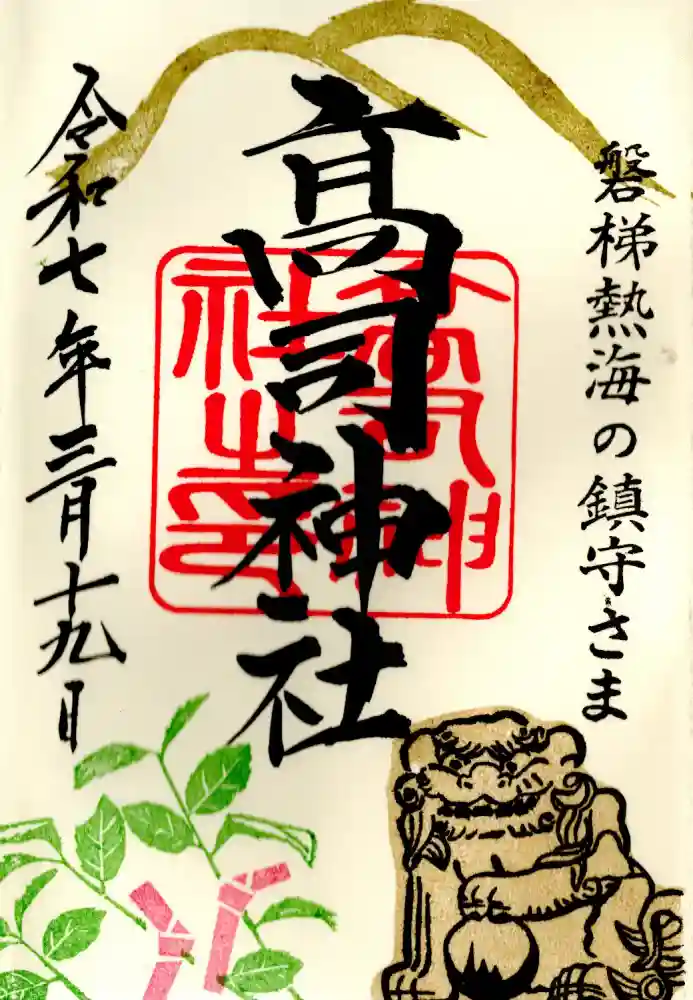 磐梯熱海の鎮守さま
高司神社
高司神社之印
令和七年三月十九日